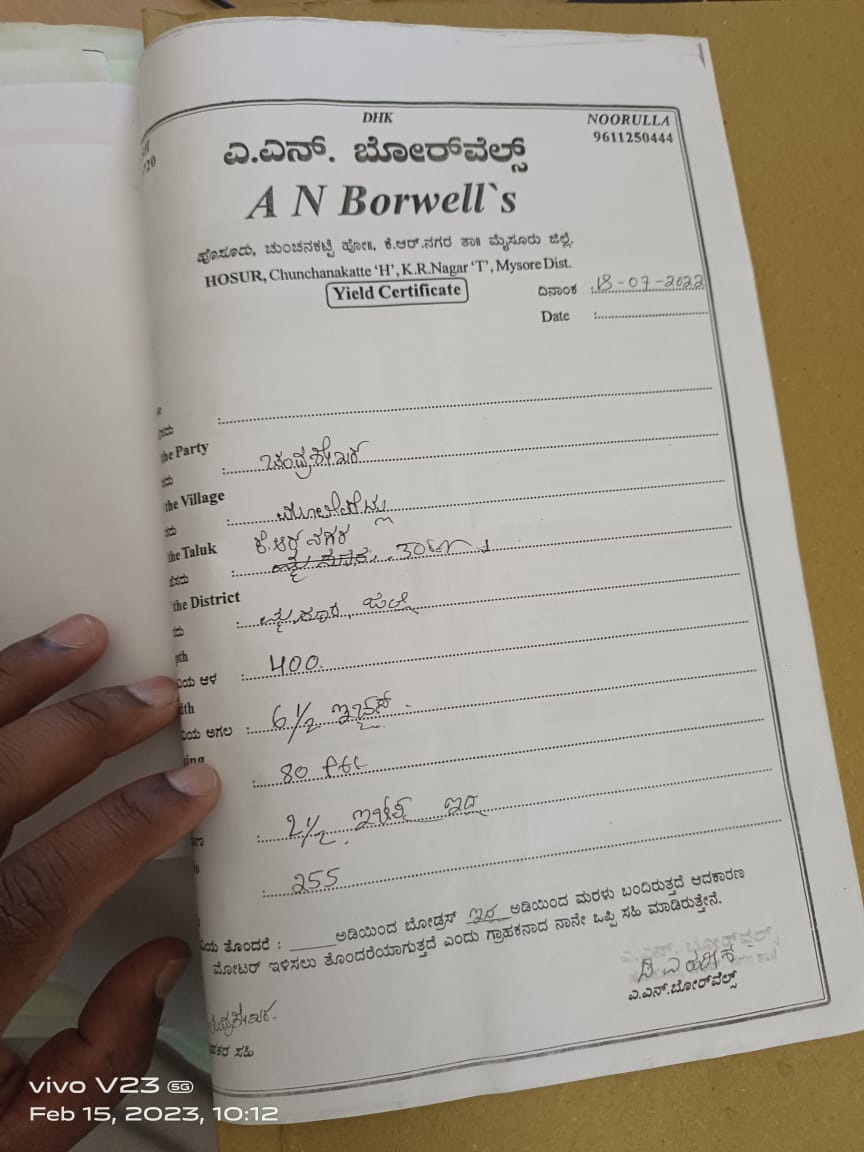 DHK
NOORULLA
9611250444
ಎ.ಎನ್. ಬೋರ್‌ವೆಲ್ಸ್
A N Borwell`s
ಹೊಸೂರು, ಚುಂಚನಕಟ್ಟೆ ಹೋ॥, ಕೆ.ಆರ್.ನಗರ ತಾ॥ ಮೈಸೂರು ಜಿಲ್ಲೆ.
HOSUR, Chunchanakatte ‘H’, K.R.Nagar ‘T’, Mysore Dist.
Yield Certificate
ದಿನಾಂಕ : 18-07-2022
Date :
the Party
: ಚಂದ್ರಶೇಖರ
the Village
the Taluk
ಕೆ.ಆರ್ ನಗರ
the District
: ಮೈಸೂರು ಜಿಲ್ಲೆ
ಆಳ : 400
ಅಗಲ : 6½ ಇಂಚಸ್
: 80 ಅಡಿ
: 2½ ಇಂಚಸ್
: 255
ತೊಂದರೆ : ______ಅಡಿಯಿಂದ ಬೋಡ್ರಸ್ ಇದ ಅಡಿಯಿಂದ ಮರಳು ಬಂದಿರುತ್ತದೆ ಆದಕಾರಣ
ಮೋಟರ್ ಇಳಿಸಲು ತೊಂದರೆಯಾಗುತ್ತದೆ ಎಂದು ಗ್ರಾಹಕನಾದ ನಾನೇ ಒಪ್ಪಿ ಸಹಿ ಮಾಡಿರುತ್ತೇನೆ.
ಎ.ಎನ್.ಬೋರ್‌ವೆಲ್ಸ್
ಸಹಿ
vivo V23 5G
Feb 15, 2023, 10:12